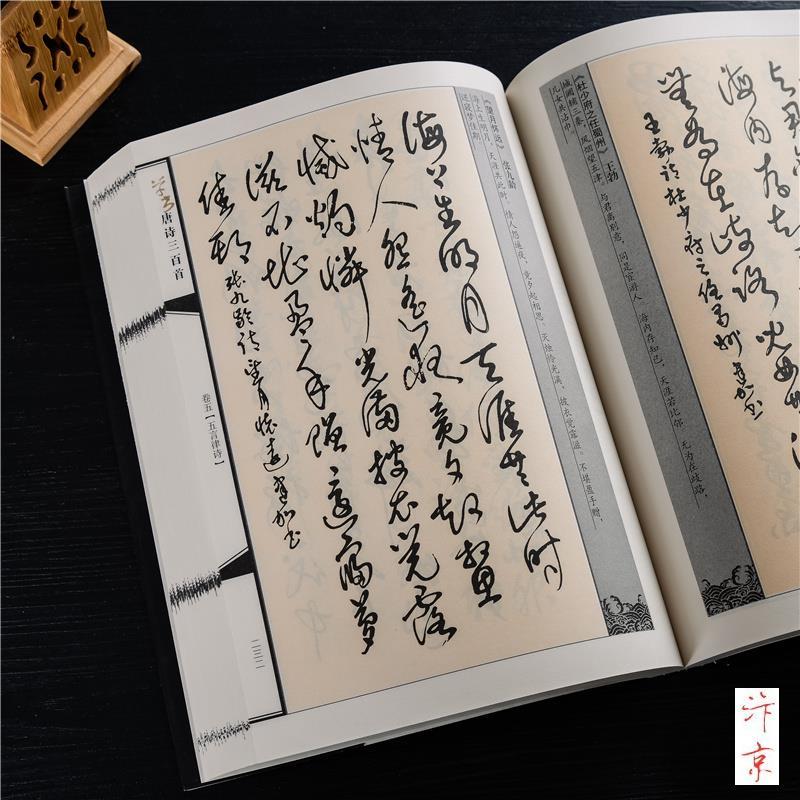 《望月怀远》 张九龄
海上生明月，天涯共此时，情人怨遥夜，竟夕起相思。灭烛怜光满，披衣觉露滋。不堪盈手赠，
还寝梦佳期。
海上生明月天涯共此時
情人怨遥夜竟夕起相思
滅燭憐光滿披衣覺露
滋不堪盈手贈還寢夢
佳期
張九齡詩望月懷遠
草书
唐诗三百首
卷五【五言律诗】
海内存知
無為在歧路兒女
王勃詩杜少府之任蜀州
《杜少府之任蜀州》 王勃
城阙辅三秦，风烟望五津。与君离别意，同是宦游人。海内存知己，天涯若比邻。无为在歧路，
儿女共沾巾。
汴京